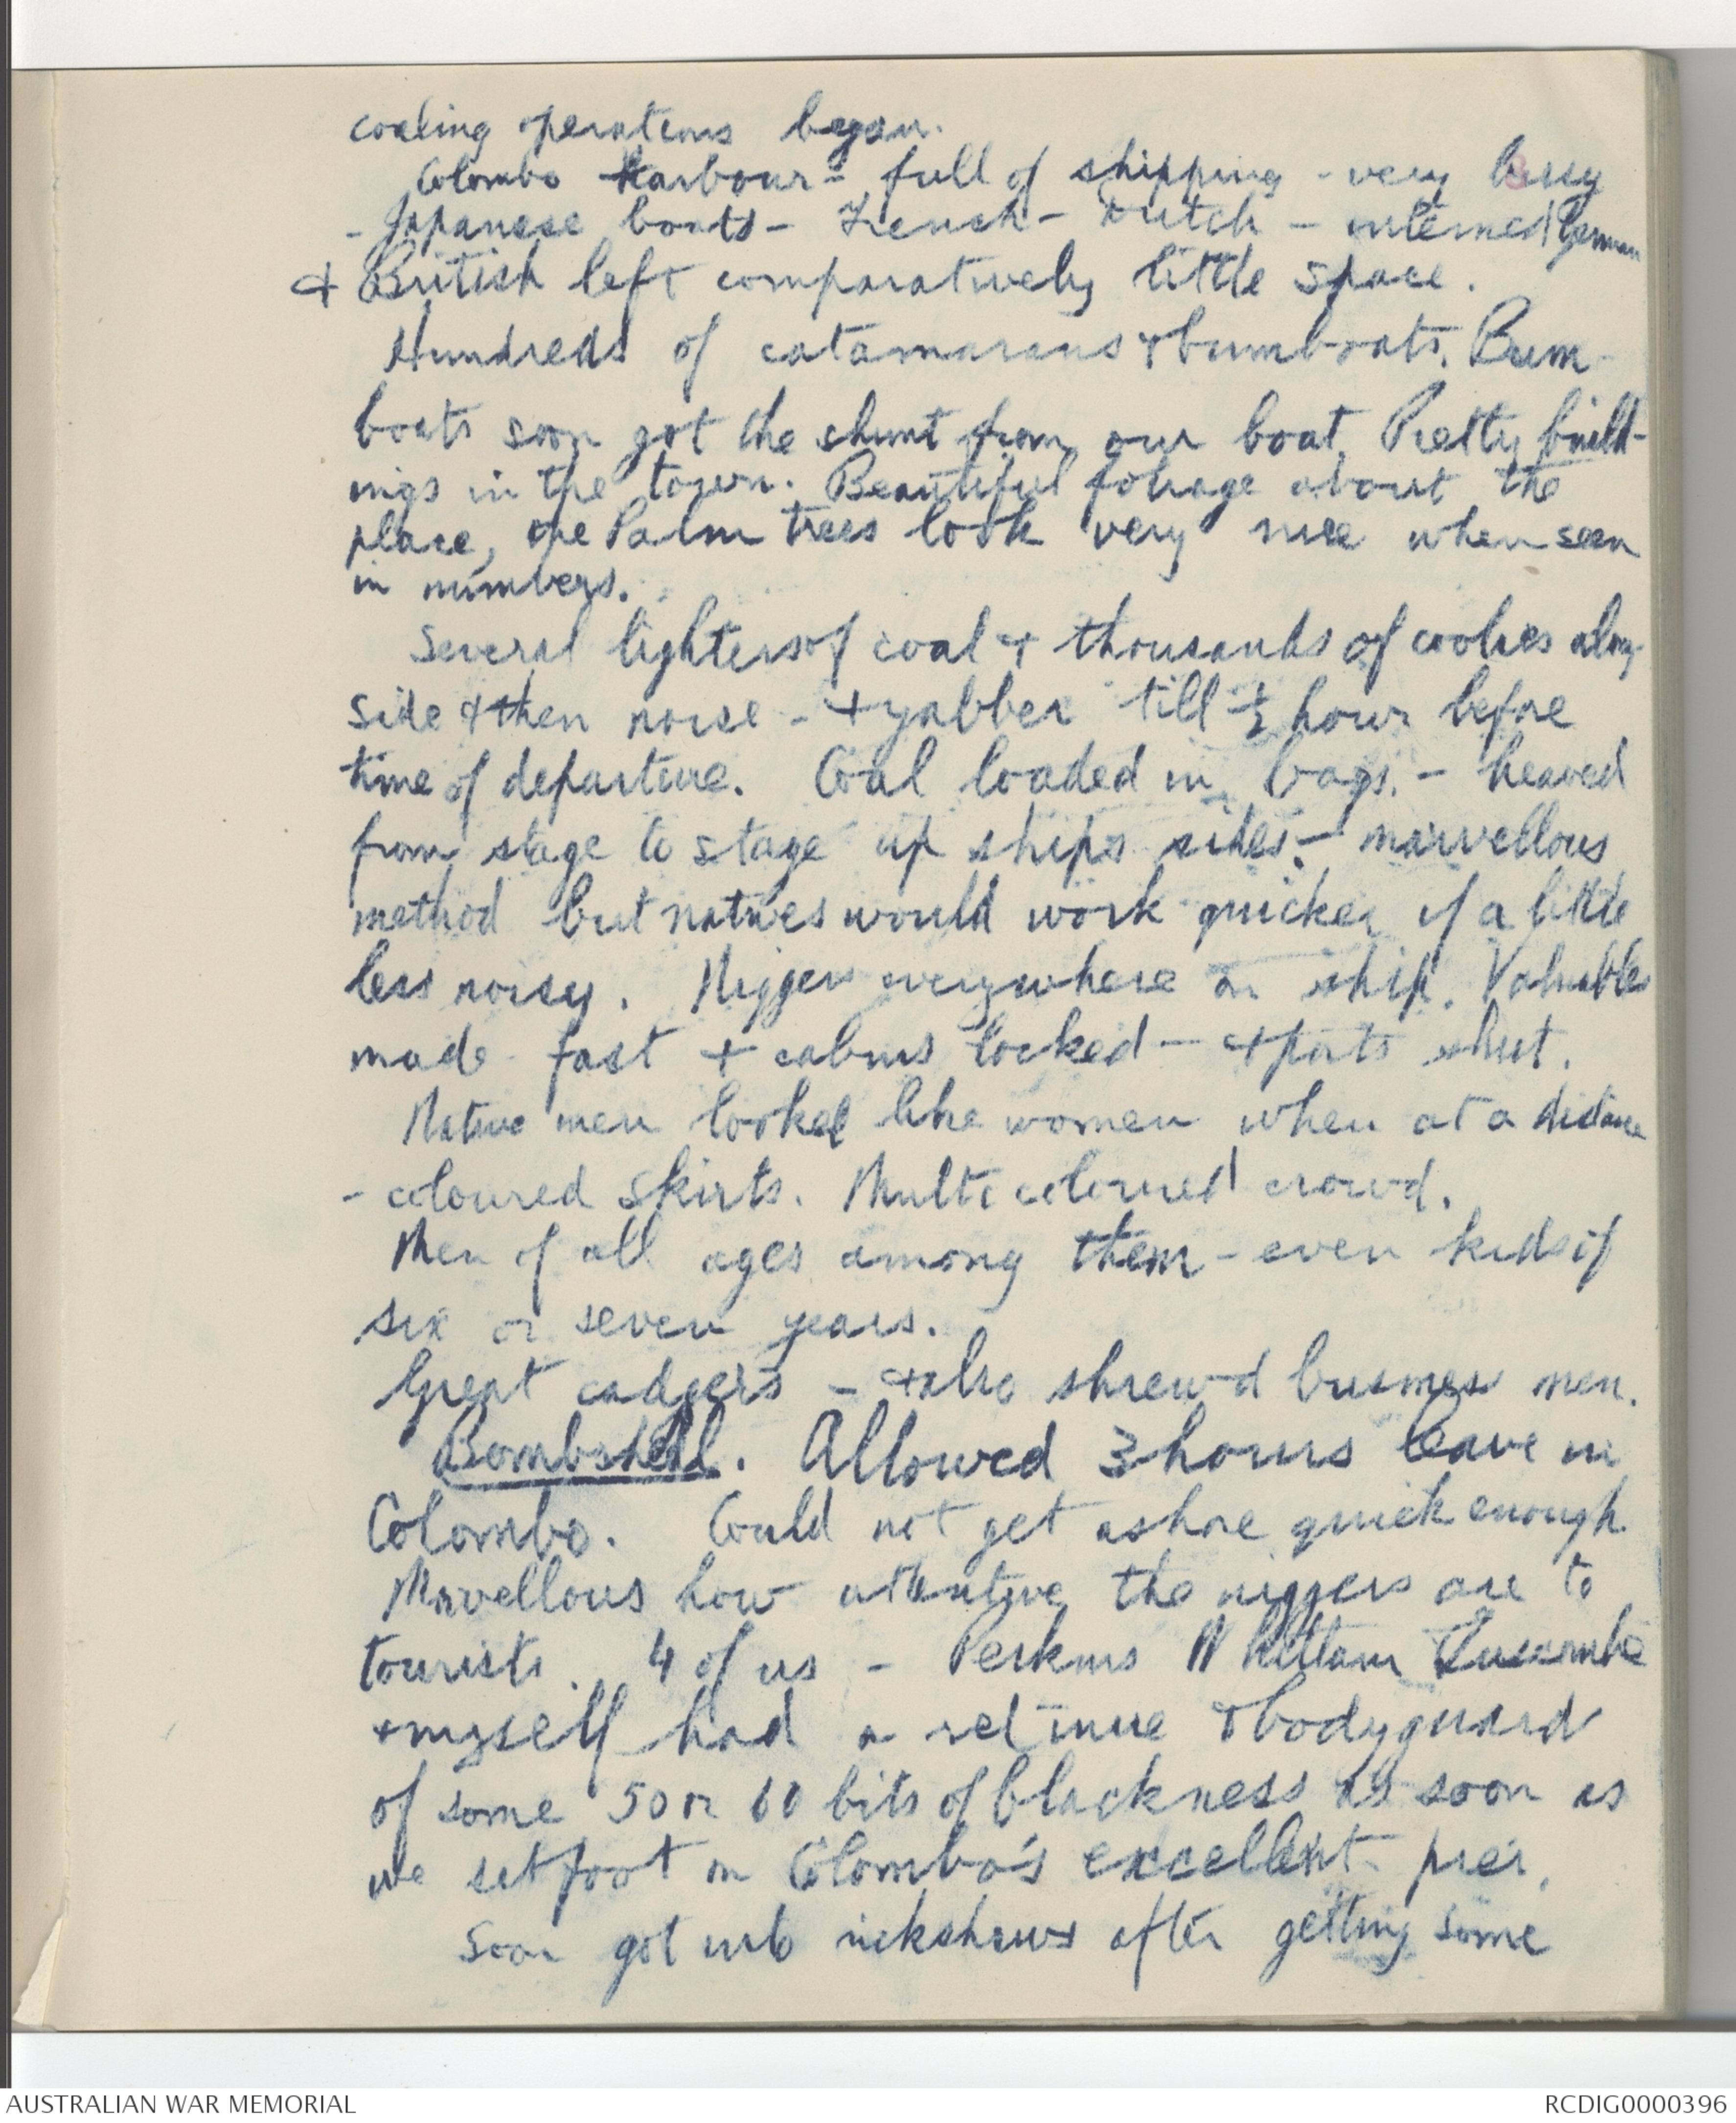 coaling operations began.
Colombo Harbour - full of shipping - very busy
- Japanese boats - French - Dutch - interned German
& British left comparatively little space.
Hundreds of catamarans & bumboats. Bum-
boats soon got the shunt from our boat. Pretty build-
ings in the town. Beautiful foliage about the
place, the Palm trees look very nice when seen
in numbers.
Several lighters of coal & thousands of coolies along-
side & then noise - & yabber till ½ hour before
time of departure. Coal loaded in bags. - heaved
from stage to stage up ships sides. - marvellous
method but natives would work quicker if a little
less noisy. Niggers everywhere on ship. Valuables
made fast + cabins locked - & ports shut.
Native men looked like women when at a distance
- coloured skirts. Multi coloured crowd.
Men of all ages among them - even kids of
six or seven years.
Great cadgers - & also shrewd business men.
Bombshell. Allowed 3 hours leave in
Colombo. Could not get ashore quick enough.
Marvellous how attentive the niggers are to
tourists. 4 of us - Perkins Whittam
& myself had a retinue & bodyguard
of some 50 or 60 bits of blackness as soon as
we set foot on Colombo's excellent pier.
Soon got into rickshaws after getting some
AUSTRALIAN WAR MEMORIAL
RCDIG0000396